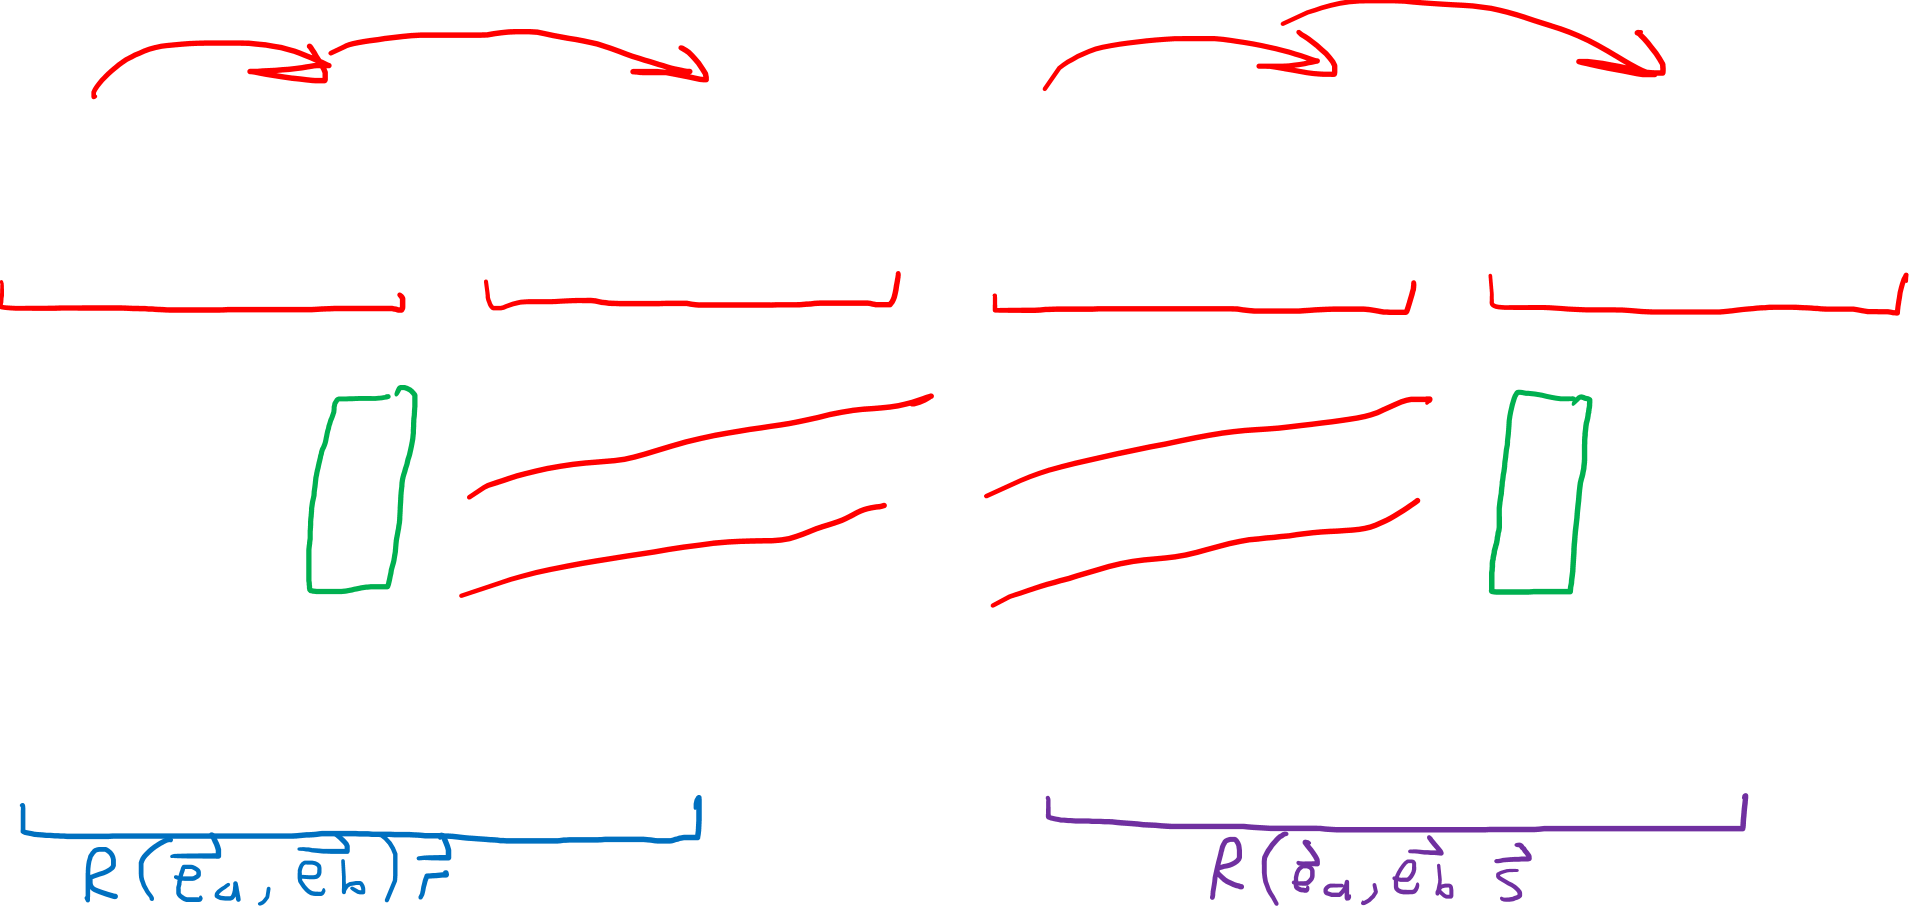 R(e⃗a, e⃗b) r⃗
R(e⃗a, e⃗b s⃗